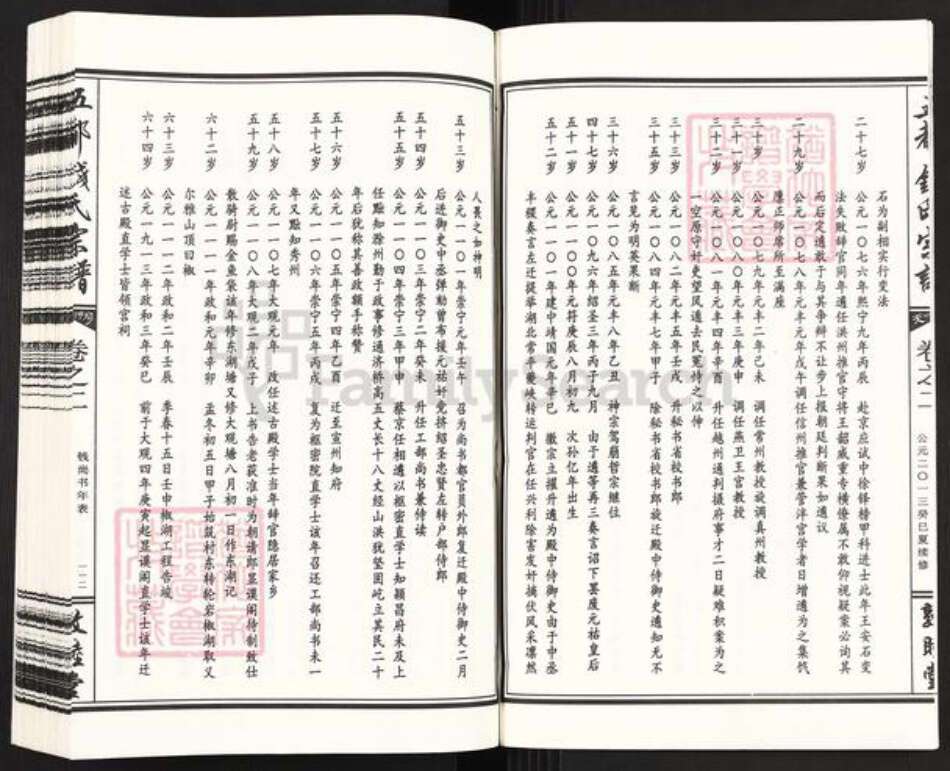 石为副相实行变法
二十七岁 公元一〇七六年熙宁九年丙辰 赴京应试中徐铎榜甲科进士此年王安石变
法失败辞官同年遹任洪州推官守将王韶威重专横僚属不敢仰视疑案必询其
而后定遹敢于与其争辩不让步上报朝廷判断果如遹议
二十九岁 公元一〇七八年元丰元年戊午调任信州推官兼管泮宫学者日增遹为之集饩
廪正师席所至满座
三十岁 公元一〇七九年元丰二年己未 调任常州教授旋调真州教授
三十一岁 公元一〇八〇年元丰三年庚申 调任燕卫王宫教授
三十二岁 公元一〇八一年元丰四年辛酉 升任越州通判摄府事才二日疑难积案为之
一空原守奸吏望风遁去民冤恃之以伸
三十三岁 公元一〇八二年元丰五年壬戌 升秘书省校书郎
三十五岁 公元一〇八四年元丰七年甲子 除秘书省校书郎旋迁殿中侍御史遹知无不
言见为明英果断
三十六岁 公元一〇八五年元丰八年乙丑 神宗驾崩哲宗继位
四十七岁 公元一〇九六年绍圣三年丙子九月 由于遹等再三奏言诏下罢废元祐皇后
五十一岁 公元一一〇〇年元符庚辰八月初九 次孙忆年出生
五十二岁 公元一一〇一年建中靖国元年辛巳 徽宗立擢升遹为殿中侍御史由于中丞
丰稷奏言左迁提举湖北常平夔峡转运判官在任兴利除害发奸摘伏风采凛然
人畏之如神明
五十三岁 公元一一〇一年崇宁元年壬午 召为尚书都官员外郎复迁殿中侍御史二月
后进御史中丞弹劾曾布援元祐奸党挤绍圣忠贤左转户部侍郎
五十四岁 公元一一〇三年崇宁二年癸未 升任工部尚书兼侍读
五十五岁 公元一一〇四年崇宁三年甲申 蔡京任相遹以枢密直学士知颖昌府未及上
任黜知滁州勤于政事修通济桥高五丈长十八丈经山洪犹坚固屹立其民二十
年后犹称其善政额手称赞
五十六岁 公元一一〇五年崇宁四年乙酉 迁至宣州知府
五十七岁 公元一一〇六年崇宁五年丙戌 复为枢密院直学士该年召还工部尚书未一
年又黜知秀州
五十八岁 公元一一〇七年大观元年 改任述古殿学士当年辞官隐居家乡
五十九岁 公元一一〇八年大观二年戊子 上书告老获准时为朝请郎显谟阁待制致仕
散骑尉赐金鱼袋该年修东湖塘又修大观塘八月初一日作东湖记
六十二岁 公元一一一一年政和元年辛卯 孟冬初五日甲子始筑村东转轮岩椒湖取义
尔雅山顶曰椒
六十三岁 公元一一一二年政和二年壬辰 季春十五日壬申椒湖工程告竣
六十四岁 公元一一九一三年政和三年癸巳 前于大观四年庚寅起显谟阁直学士该年迁
述古殿直学士皆领宫祠
五都钱氏宗谱
卷之二
钱尚书年表
敦睦堂
公元二〇一三癸巳夏续修
FamilySearch